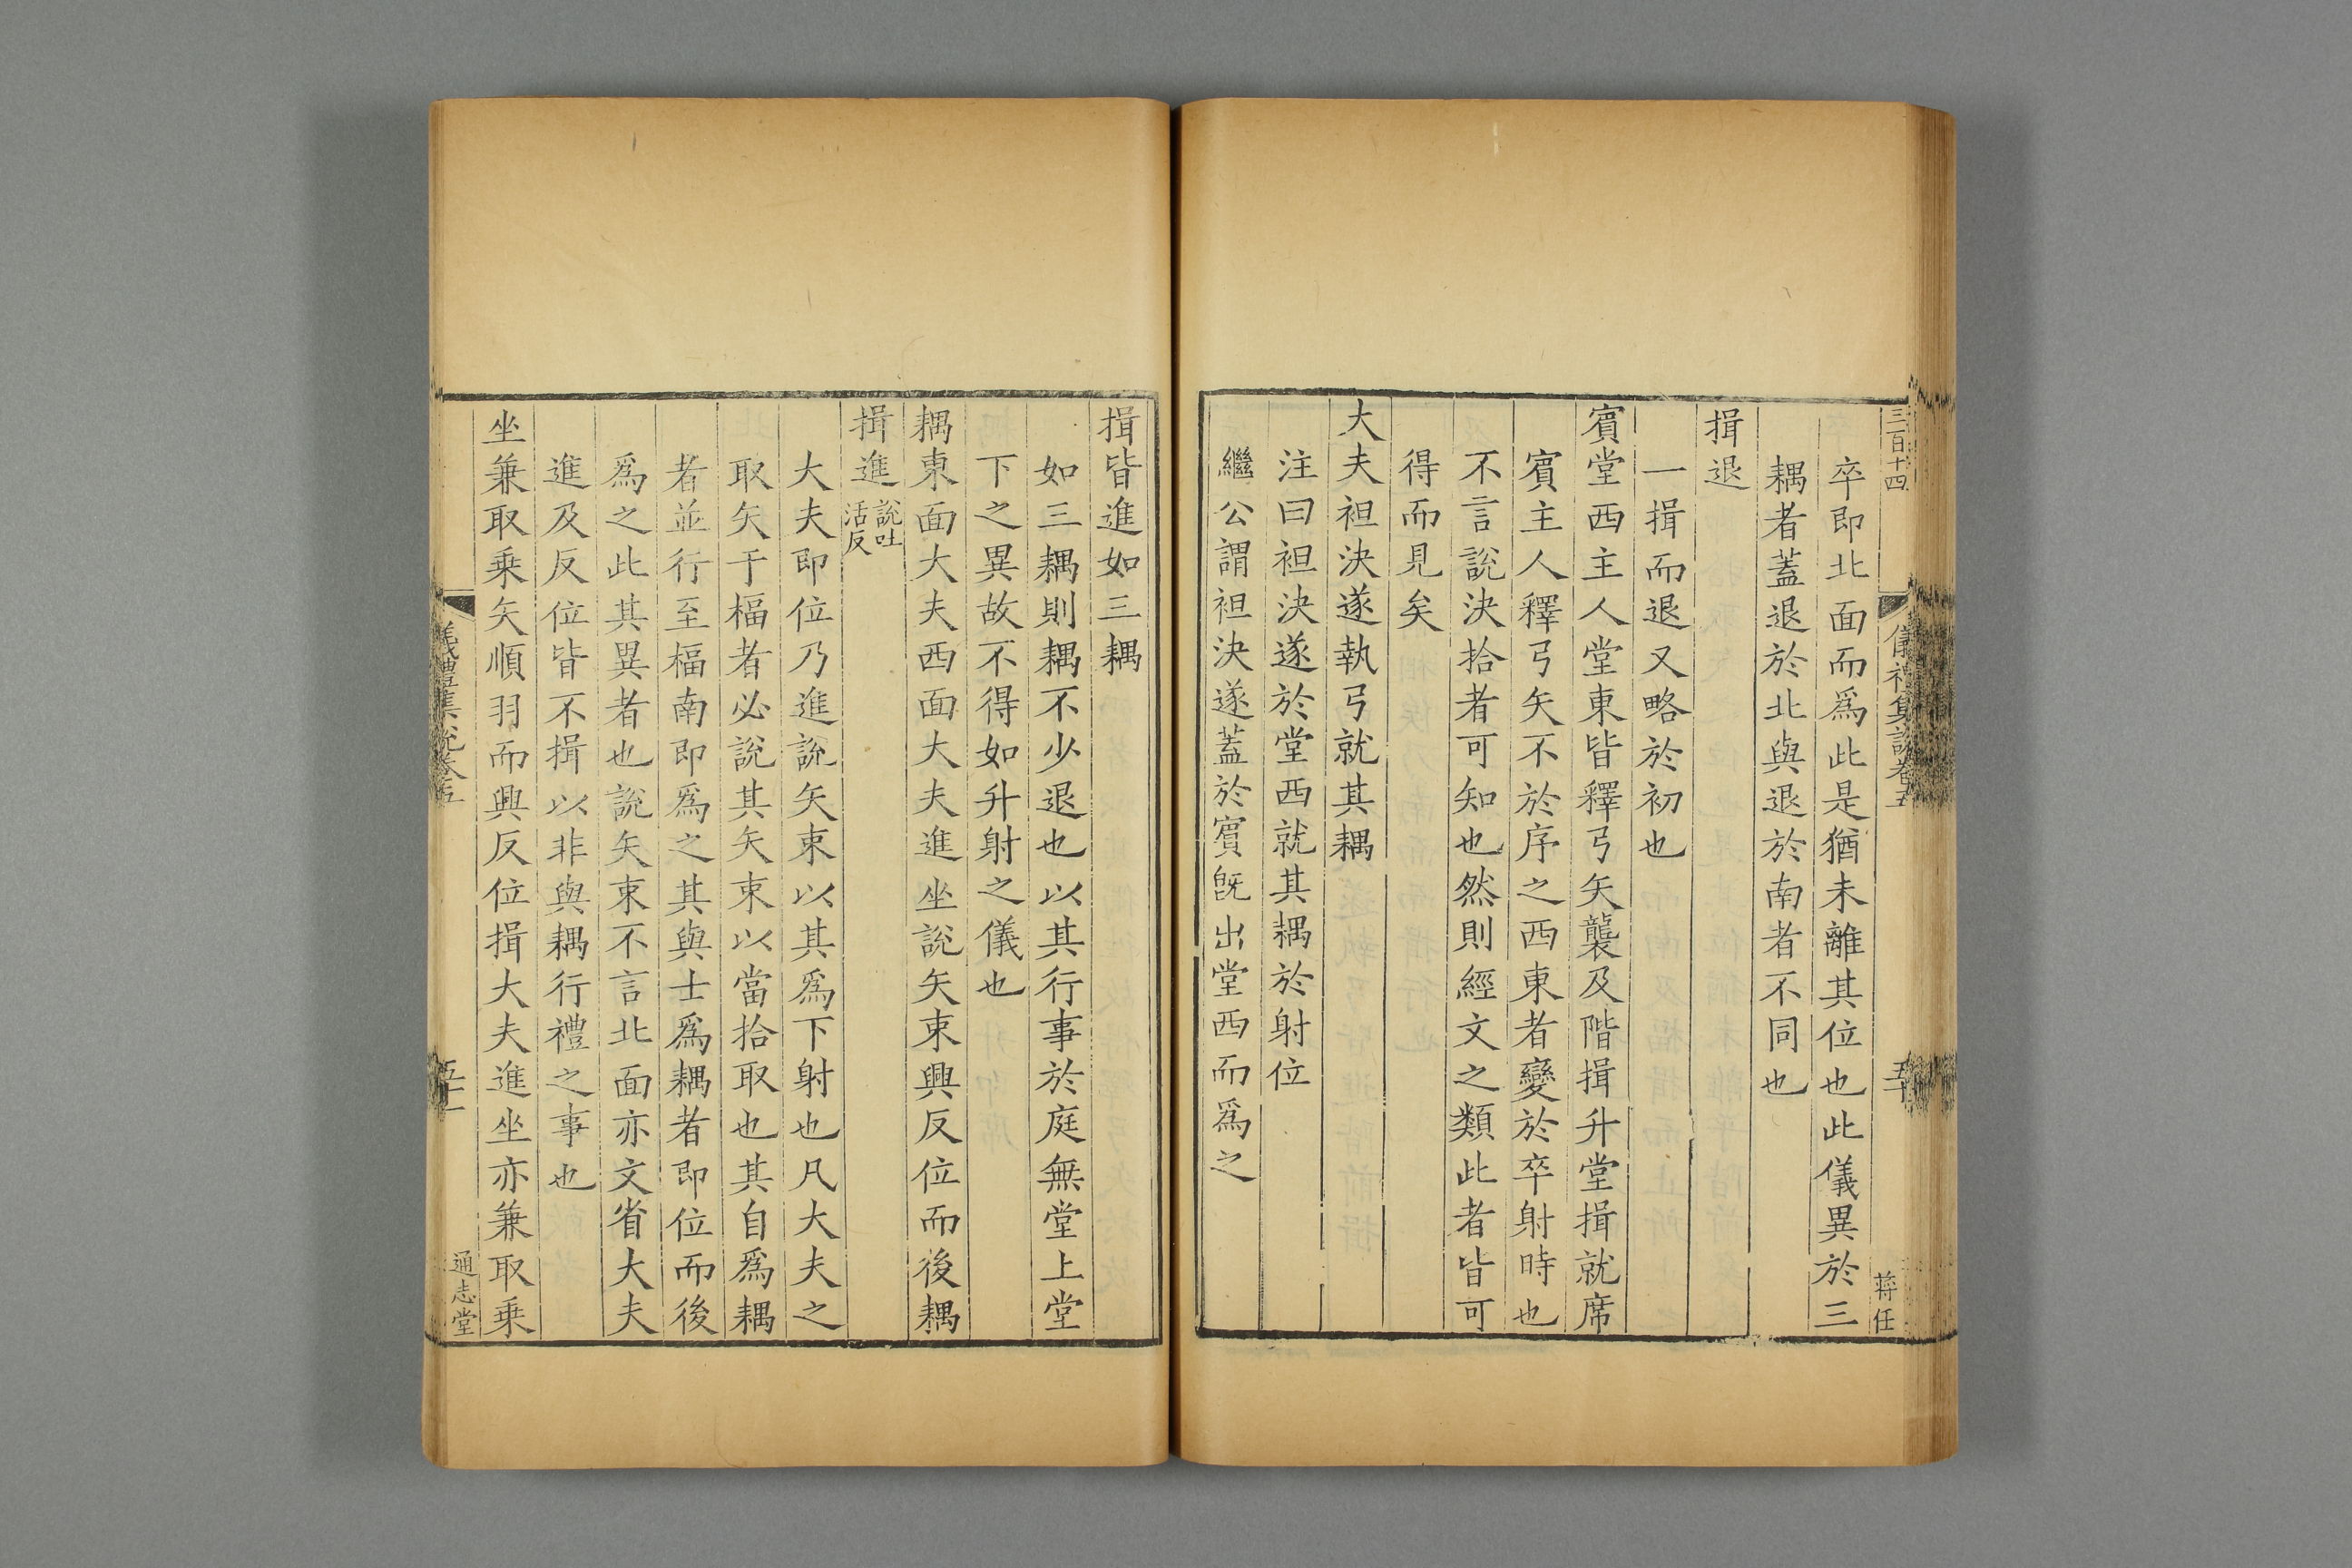 三百十四
儀禮集說卷五
五十
蔣任
卒即北面而爲此是猶未離其位也此儀異於三
耦者蓋退於北與退於南者不同也
揖退
一揖而退又略於初也
賓堂西主人堂東皆釋弓矢襲及階揖升堂揖就席
賓主人釋弓矢不於序之西東者變於卒射時也
不言說決拾者可知也然則經文之類此者皆可
得而見矣
大夫袒決遂執弓就其耦
注曰袒決遂於堂西就其耦於射位
繼公謂袒決遂蓋於賓旣出堂西而爲之
揖皆進如三耦
如三耦則耦不少退也以其行事於庭無堂上堂
下之異故不得如升射之儀也
耦東面大夫西面大夫進坐說矢束興反位而後耦
揖進說吐活反
大夫即位乃進說矢束以其爲下射也凡大夫之
取矢于楅者必說其矢束以當拾取也其自爲耦
者並行至楅南即爲之其與士爲耦者即位而後
爲之此其異者也說矢束不言北面亦文省大夫
進及反位皆不揖以非與耦行禮之事也
坐兼取乘矢順羽而興反位揖大夫進坐亦兼取乘
儀禮集說卷五
五十一
通志堂